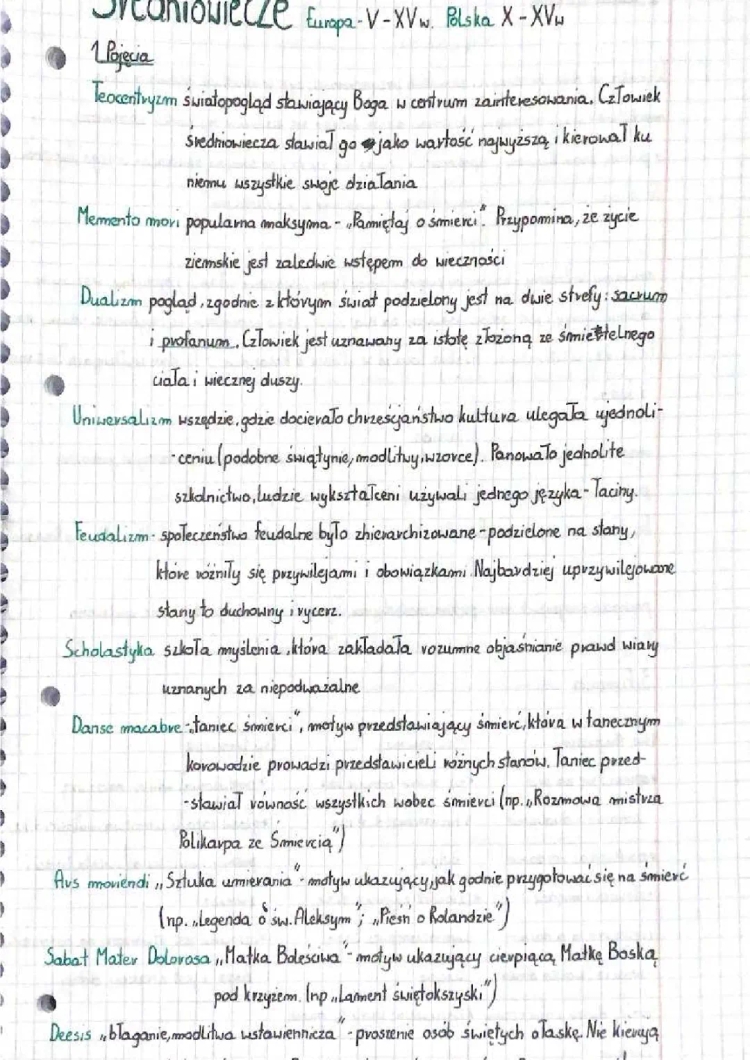 Średniowiecze Europa - V - XV w. Polska X - XV w
1. Pojęcia
Teocentryzm światopogląd stawiający Boga w centrum zainteresowania. Człowiek
średniowiecza stawiał go jako wartość najwyższą i kierował ku
niemu wszystkie swoje działania
Memento mori popularna maksyma - „Pamiętaj o śmierci”. Przypomina, że życie
ziemskie jest zaledwie wstępem do wieczności
Dualizm pogląd, zgodnie z którym świat podzielony jest na dwie strefy: sacrum
i profanum. Człowiek jest uznawany za istotę złożoną ze śmiertelnego
ciała i wiecznej duszy.
Uniwersalizm wszędzie, gdzie docierało chrześcjaństwo kultura ulegała ujednoli-
-ceniu (podobne świątynie, modlitwy, wzorce). Panowało jednolite
szkolnictwo, ludzie wykształceni używali jednego języka - łaciny.
Feudalizm - społeczeństwo feudalne było zhierarchizowane - podzielone na stany,
które różniły się przywilejami i obowiązkami. Najbardziej uprzywilejowane
stany to duchowny i rycerz.
Scholastyka szkoła myślenia, która zakładała rozumne objaśnianie prawd wiary
uznanych za niepodważalne
Danse macabre - „taniec śmierci”, motyw przedstawiający śmierć, która w tanecznym
korowodzie prowadzi przedstawicieli różnych stanów. Taniec przed-
-stawiał równość wszystkich wobec śmierci (np. „Rozmowa mistrza
Polikarpa ze Śmiercią”)
Ars moriendi „Sztuka umierania” - motyw ukazujący, jak godnie przygotować się na śmierć
(np. „Legenda o św. Aleksym”; „Pieśń o Rolandzie”)
Sabat Mater Dolorosa „Matka Boleściwa” - motyw ukazujący cierpiącą Matkę Boską
pod krzyżem. (np „Lament świętokszyski”)
Deesis „błaganie, modlitwa wstawiennicza” - proszenie osób świętych o łaskę. Nie kierują